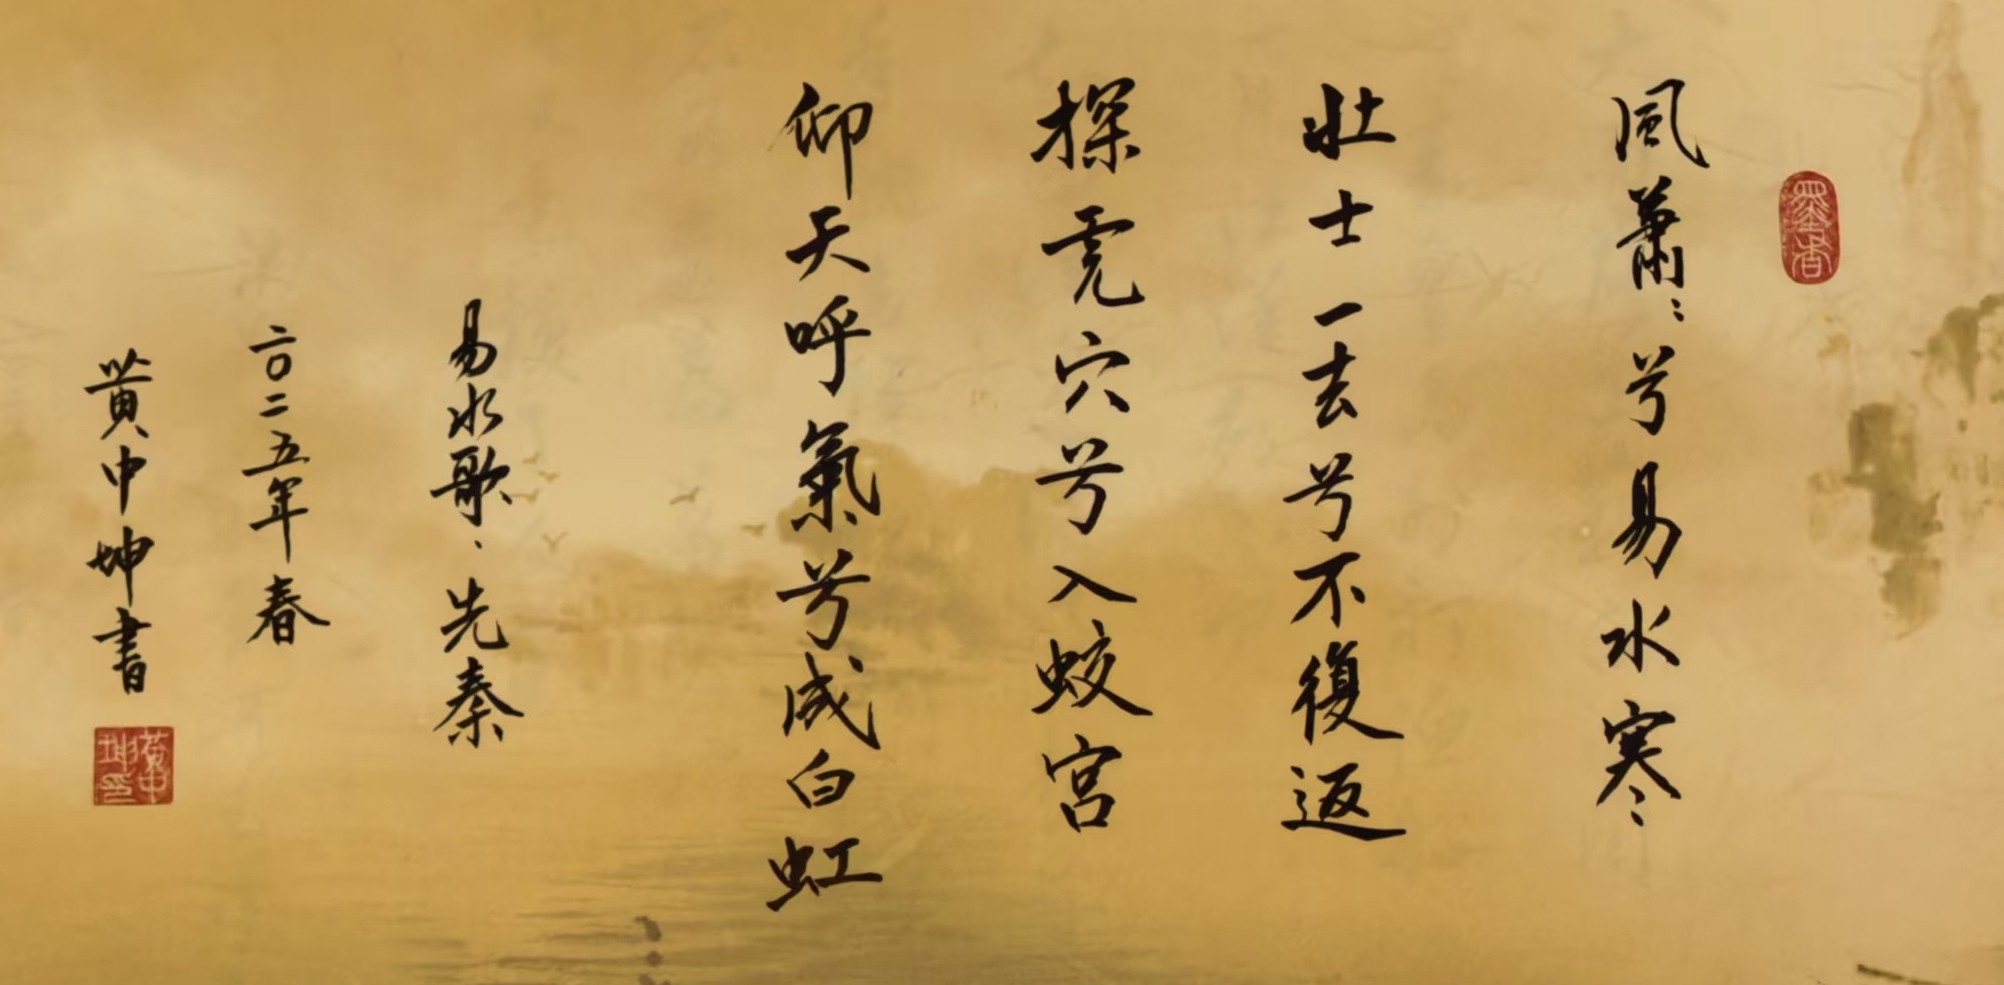 墨香
風蕭〻兮易水寒
壯士一去兮不復返
探虎穴兮入蛟宮
仰天呼氣兮成白虹
易水歌、先秦
二〇二五年春
黄中坤書
黄中坤印